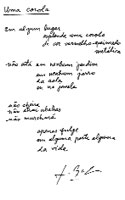 Uma corola
Em algum lugar
esplende uma corola
de cor vermelho-queimado
metálica
não está em nenhum jardim
em nenhum jarro
da sala
ou na janela
não cheira
não atrai abelhas
não murchará
apenas fulge
em alguma parte alguma
da vida